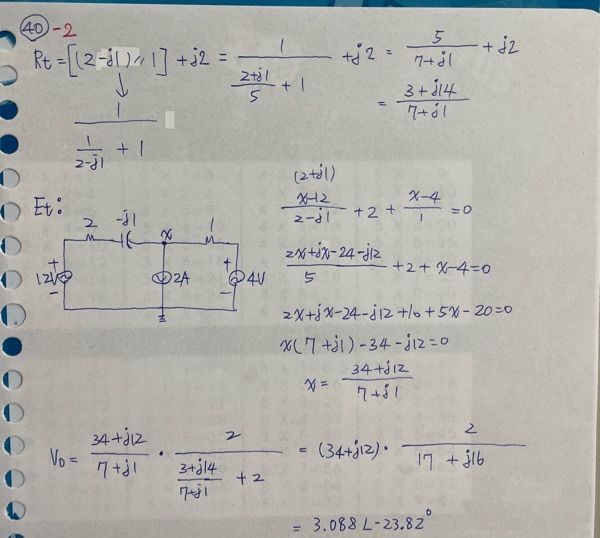 40 -2
Rt = [(2-j1) // 1] + j2 = 1 / ((2+j1)/5 + 1) + j2 = 5/(7+j1) + j2
↓
1 / (1/(2-j1) + 1)
= (3+j14)/(7+j1)
Et:
2 -j1 x 1
12V + - 2A + - 4V
(2+j1)
(x-12)/(2-j1) + 2 + (x-4)/1 = 0
(2x+jx-24-j12)/5 + 2 + x-4 = 0
2x+jx-24-j12+10+5x-20=0
x(7+j1)-34-j12=0
x = (34+j12)/(7+j1)
VO = (34+j12)/(7+j1) · 2/((3+j14)/(7+j1) + 2) = (34+j12) · 2/(17+j16)
= 3.088∠-23.82°